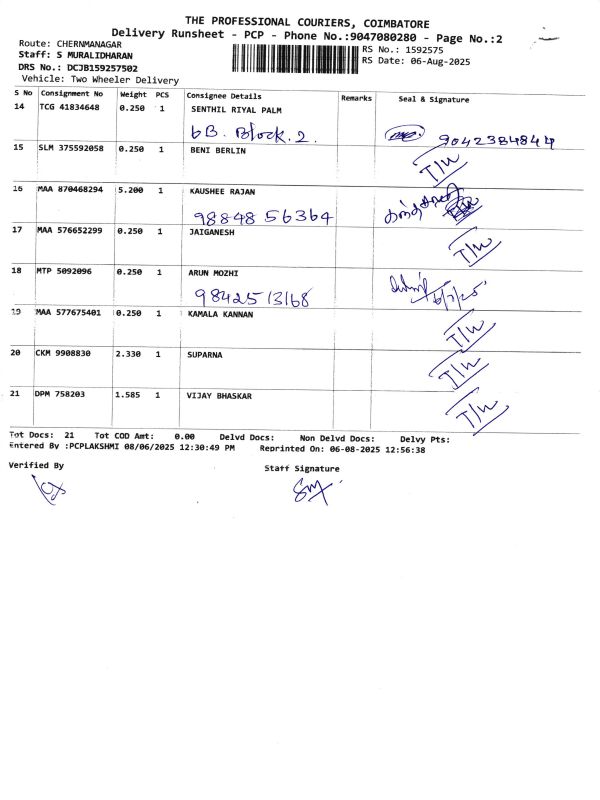 THE PROFESSIONAL COURIERS, COIMBATORE
Delivery Runsheet - PCP - Phone No.:9047080280 - Page No.:2
Route: CHERNMANAGAR
RS No.: 1592575
Staff: S MURALIDHARAN
RS Date: 06-Aug-2025
DRS No.: DCJB159257502
Vehicle: Two Wheeler Delivery
S No Consignment No Weight PCS Consignee Details Remarks Seal & Signature
14 TCG 41834648 0.250 1 SENTHIL RIYAL PALM
6B. Block. 2. 9042384844
15 SLM 375592058 0.250 1 BENI BERLIN
T/W
16 MAA 870468294 5.200 1 KAUSHEE RAJAN
98848 56364
17 MAA 576652299 0.250 1 JAIGANESH
T/W
18 MTP 5092096 0.250 1 ARUN MOZHI
9842513168
19 MAA 577675401 0.250 1 KAMALA KANNAN
T/W
20 CKM 9908830 2.330 1 SUPARNA
T/W
21 DPM 758203 1.585 1 VIJAY BHASKAR
T/W
Tot Docs: 21 Tot COD Amt: 0.00 Delvd Docs: Non Delvd Docs: Delvy Pts:
Entered By :PCPLAKSHMI 08/06/2025 12:30:49 PM Reprinted On: 06-08-2025 12:56:38
Verified By Staff Signature